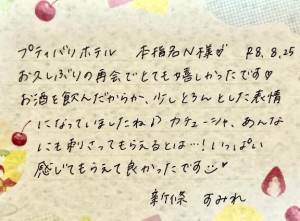 プティバリホテル 本指名N様♡ R8.8.25
お久しぶりの再会でとても嬉しかったです♡
お酒を飲んだからか、少しとろんとした表情
になっていましたね♪ カチューシャ、あんな
にも刺さってもらえるとは…!いっぱい
感じてもらえて良かったです☺♡
新條 すみれ